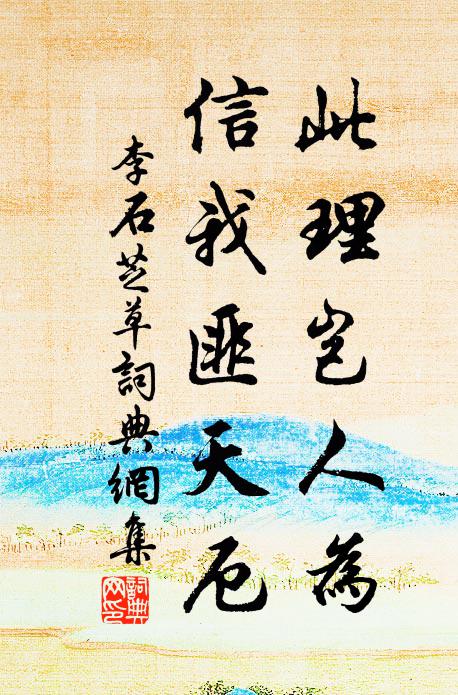 此理岂人為
信我匪天厄
李石芝草詞典網集
詞典